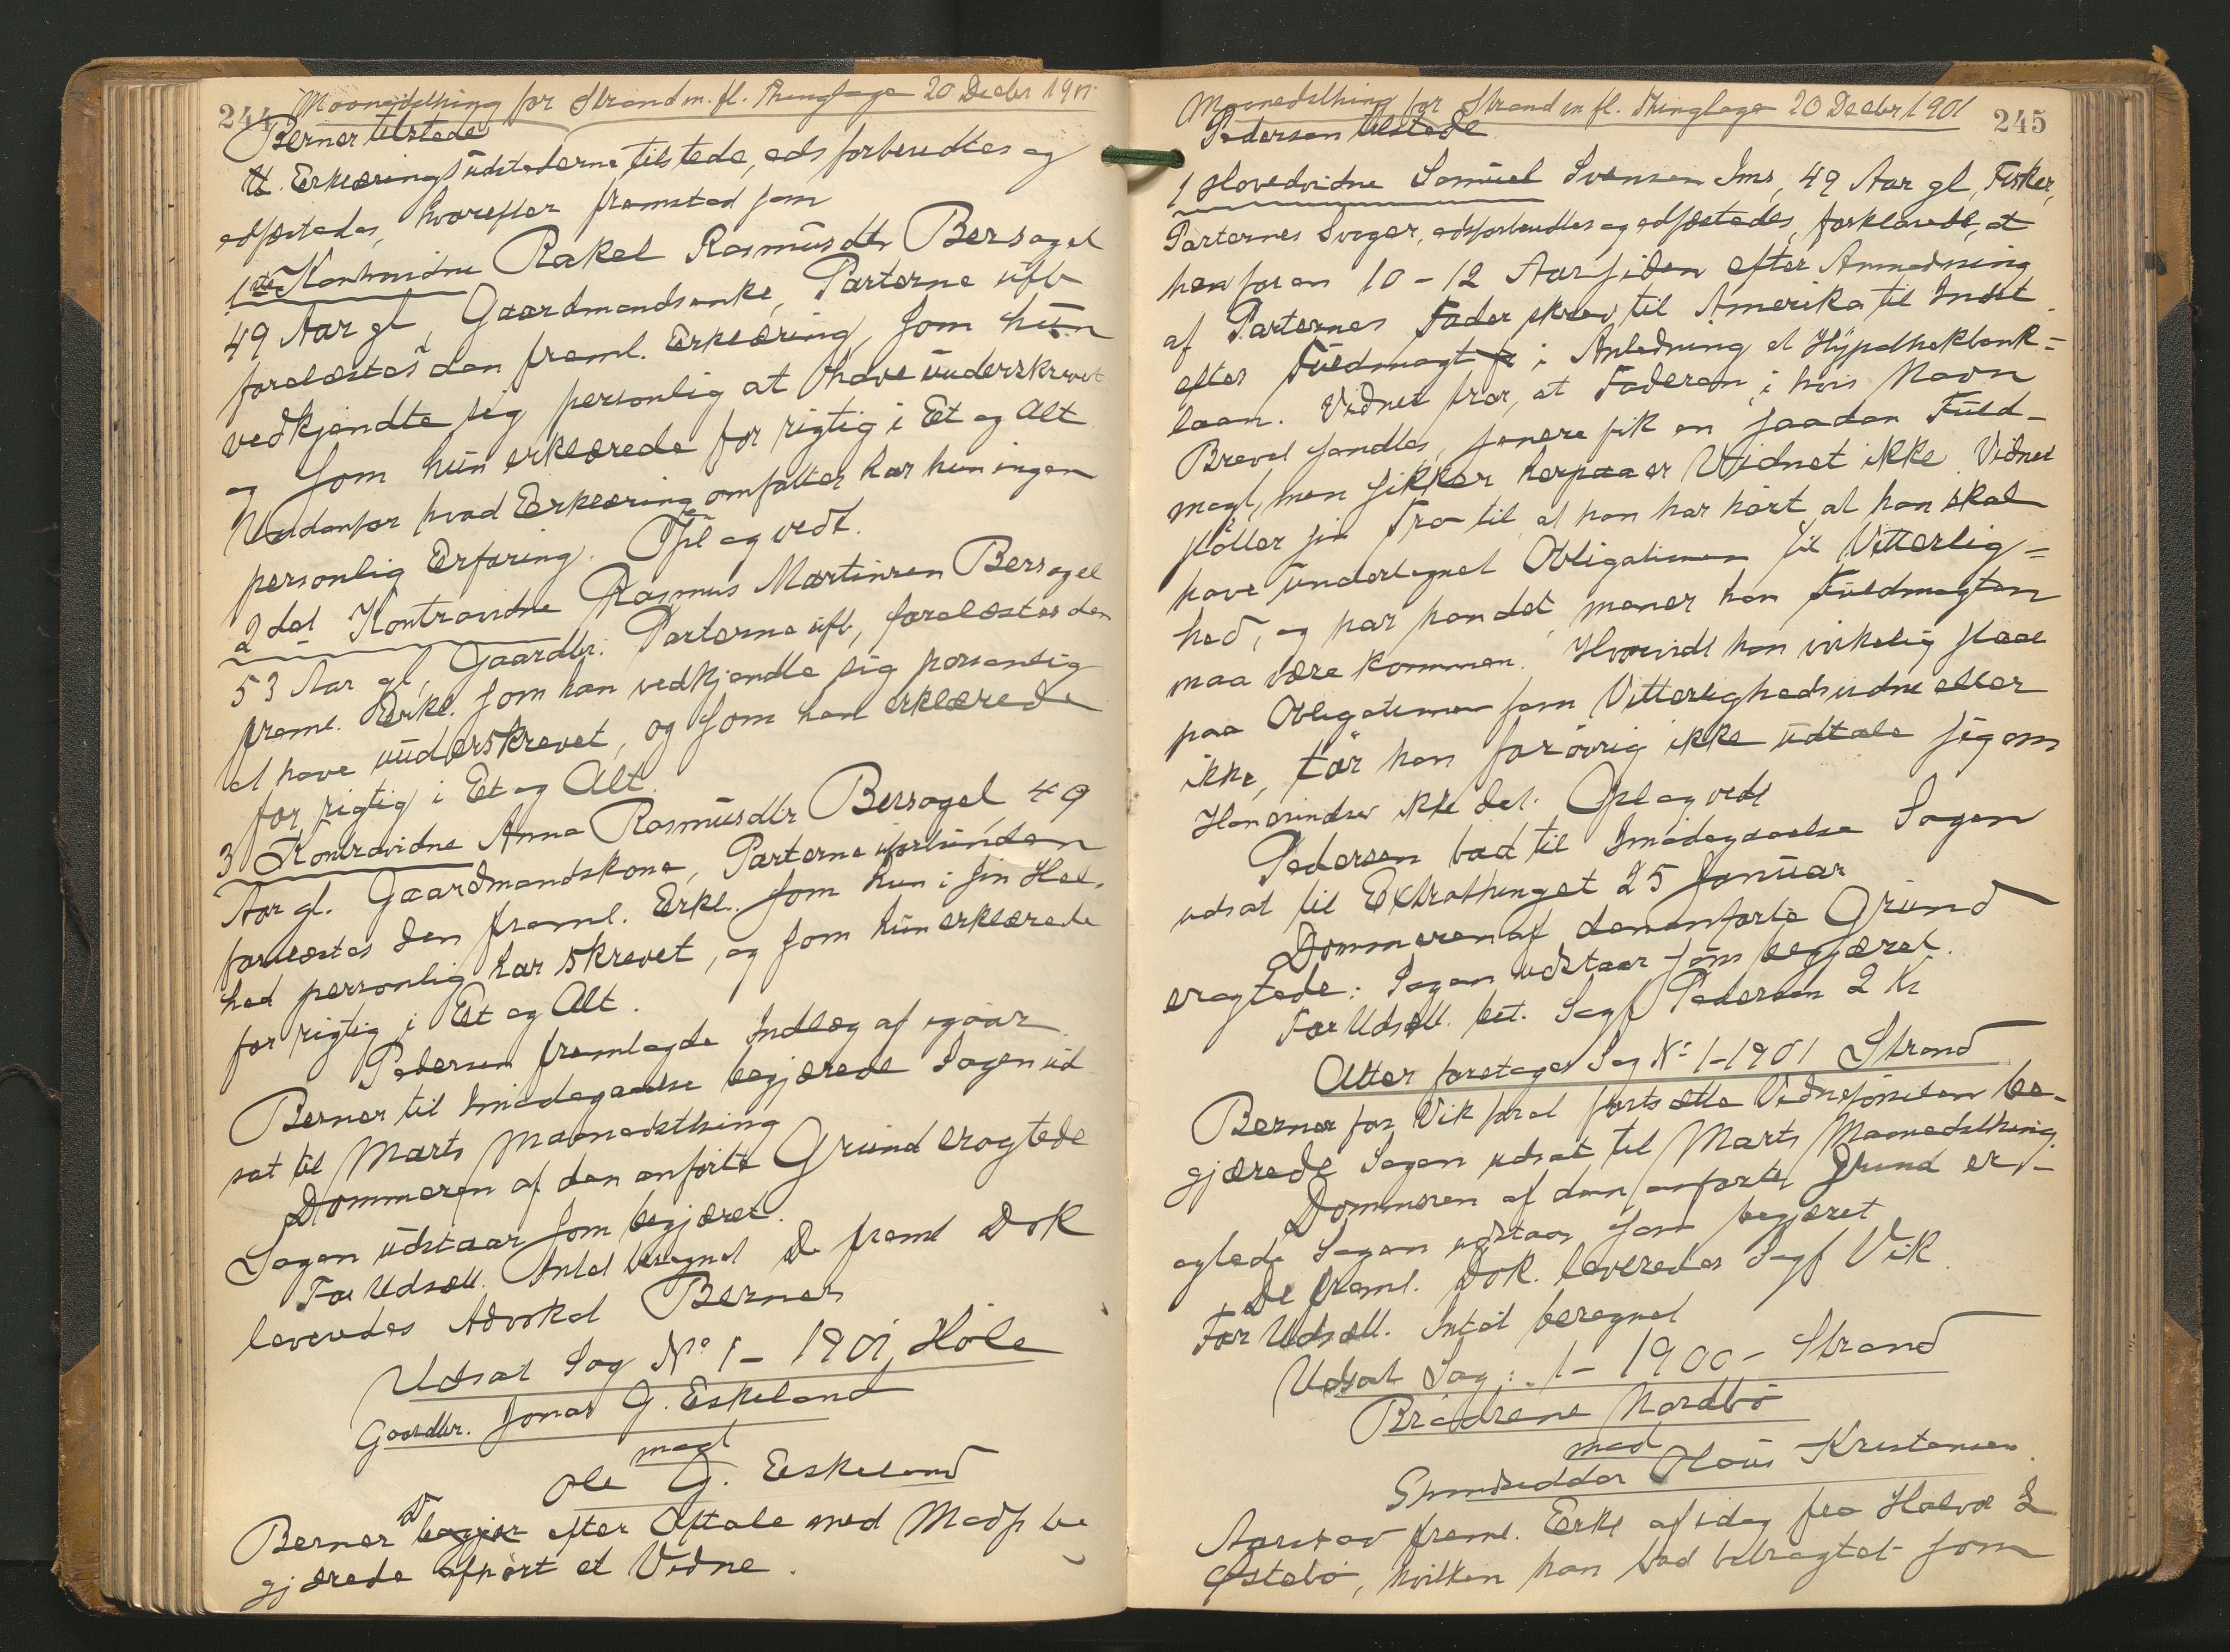 244 Maanedsthing for Strand m. fl. Thinglage 20 Decbr 1901
Berner tilstede
Erklæringsudstederne tilstede, edsforberedtes og
edfæstedes, hvorefter fremstod som
1ste Kontravidne Rakel Rasmusdtr Bersagel
49 Aar gl, Gaardmandsenke, Parterne ufb
forelæstes den freml. Erklæring, som hun
vedkjendte sig personlig at have underskrevet
og som hun erklærede for rigtig i Et og Alt
Udenfor hvad Erklæringen omfatter har hun ingen
personlig Erfaring. Opl og vedt.
2det Kontravidne Rasmus Martinsen Bersagel
53 Aar gl, Gaardbr. Parterne ufb, forelæstes den
freml. Erkl. som han vedkjendte sig personlig
at have underskrevet, og som han erklærede
for rigtig i Et og Alt.
3 Kontravidne Anna Rasmusdtr Bersagel, 49
Aar gl. Gaardmandskone, Parterne uforbunden
forelæstes den freml. Erkl. som hun i sin Hel-
hed personlig har skrevet, og som hun erklærede
for rigtig i Et og Alt.
Pedersen fremlagde Indlæg af igaar
Berner til Imødegaaelse begjærede Sagen ud
sat til Marts Maanedsthing
Dommeren af den anførte Grund eragtede
Sagen udstaar som begjæret.
For Udsætt. Intet beregnet De freml Dok
leveredes Advokat Berner
Udsat Sag No 1 - 1901 Høle
Gaardbr. Jonas G. Eskeland
mod
Ole G. Eskeland
Berner efter Aftale med Modp be
gjærede afhørt et Vidne.
Maanedsthing for Strand m fl. Thinglage 20 Decbr 1901 245
Pedersen tilstede
1 Hovedvidne Samuel Svensen Ims, 49 Aar gl, Fisker,
Parternes Svoger, edsforberedtes og edfæstedes, forklarede, at
han for en 10 - 12 Aar siden efter Anmodning
af Parternes Fader skrev til Amerika til Indst
efter Fuldmagt i Anledning et Hypothekbank-
laan. Vidnet tror, at Faderen, i hvis Navn
Brevet sendtes, senere fik en saadan Fuld-
magt, men sikker herpaa er Vidnet ikke. Vidnet
støtter sin Tro til at han har hørt at han skal
have undertegnet Obligationen til Vitterlig=
hed, og har han det, mener han Fuldmagten
maa være kommen. Hvorvidt han virkelig staar
paa Obligationen som Vitterlighedsvidne eller
ikke, tør han forøvrig ikke udtale sig om
Han erindrer ikke det. Opl og vedt
Pedersen bad til Imødegaaelse Sagen
udsat til Extrathinget 25 Januar
Dommeren af den anførte Grund
eragtede: Sagen udstaar som begjæret.
For Udsætt. bet. Sagf Pedersen 2 Kr
Atter foretages Sag No 1-1901 Strand
Berner for Vik foret fortsætte Vidneførselen be-
gjærede Sagen udsat til Marts Maanedsthing.
Dommeren af den anførte Grund er-
agtede Sagen udstaar som begjæret
De freml. Dok. leveredes Sagf Vik.
For Udsætt. Intet beregnet
Udsat Sag: 1 - 1900 - Strand
Brødrene Nordbø
mod
Olaus Kristensen
Aarstad freml. Erkl af idag fra Halvor L
Østebø, hvilken han bad betragtet som